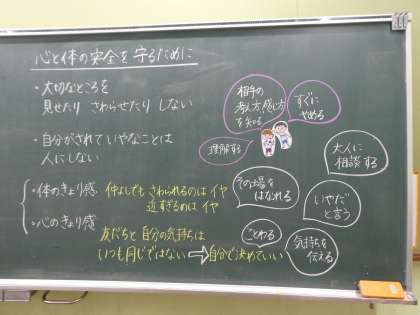 心と体の安全を守るために
・大切なところを
見せたり さわらせたり しない
・自分がされていやなことは
人にしない
・体のきょり感
仲よしでも さわられるのは イヤ
近すぎるのは イヤ
・心のきょり感
友だちと 自分の気持ちは
いつも同じではない ⇒ 自分で決めていい
相手の
考え方、感じ方
を知る
すぐに
やめる
理解する
大人に
相談する
その場を
はなれる
いやだ
と言う
ことわる
気持ちを
伝える